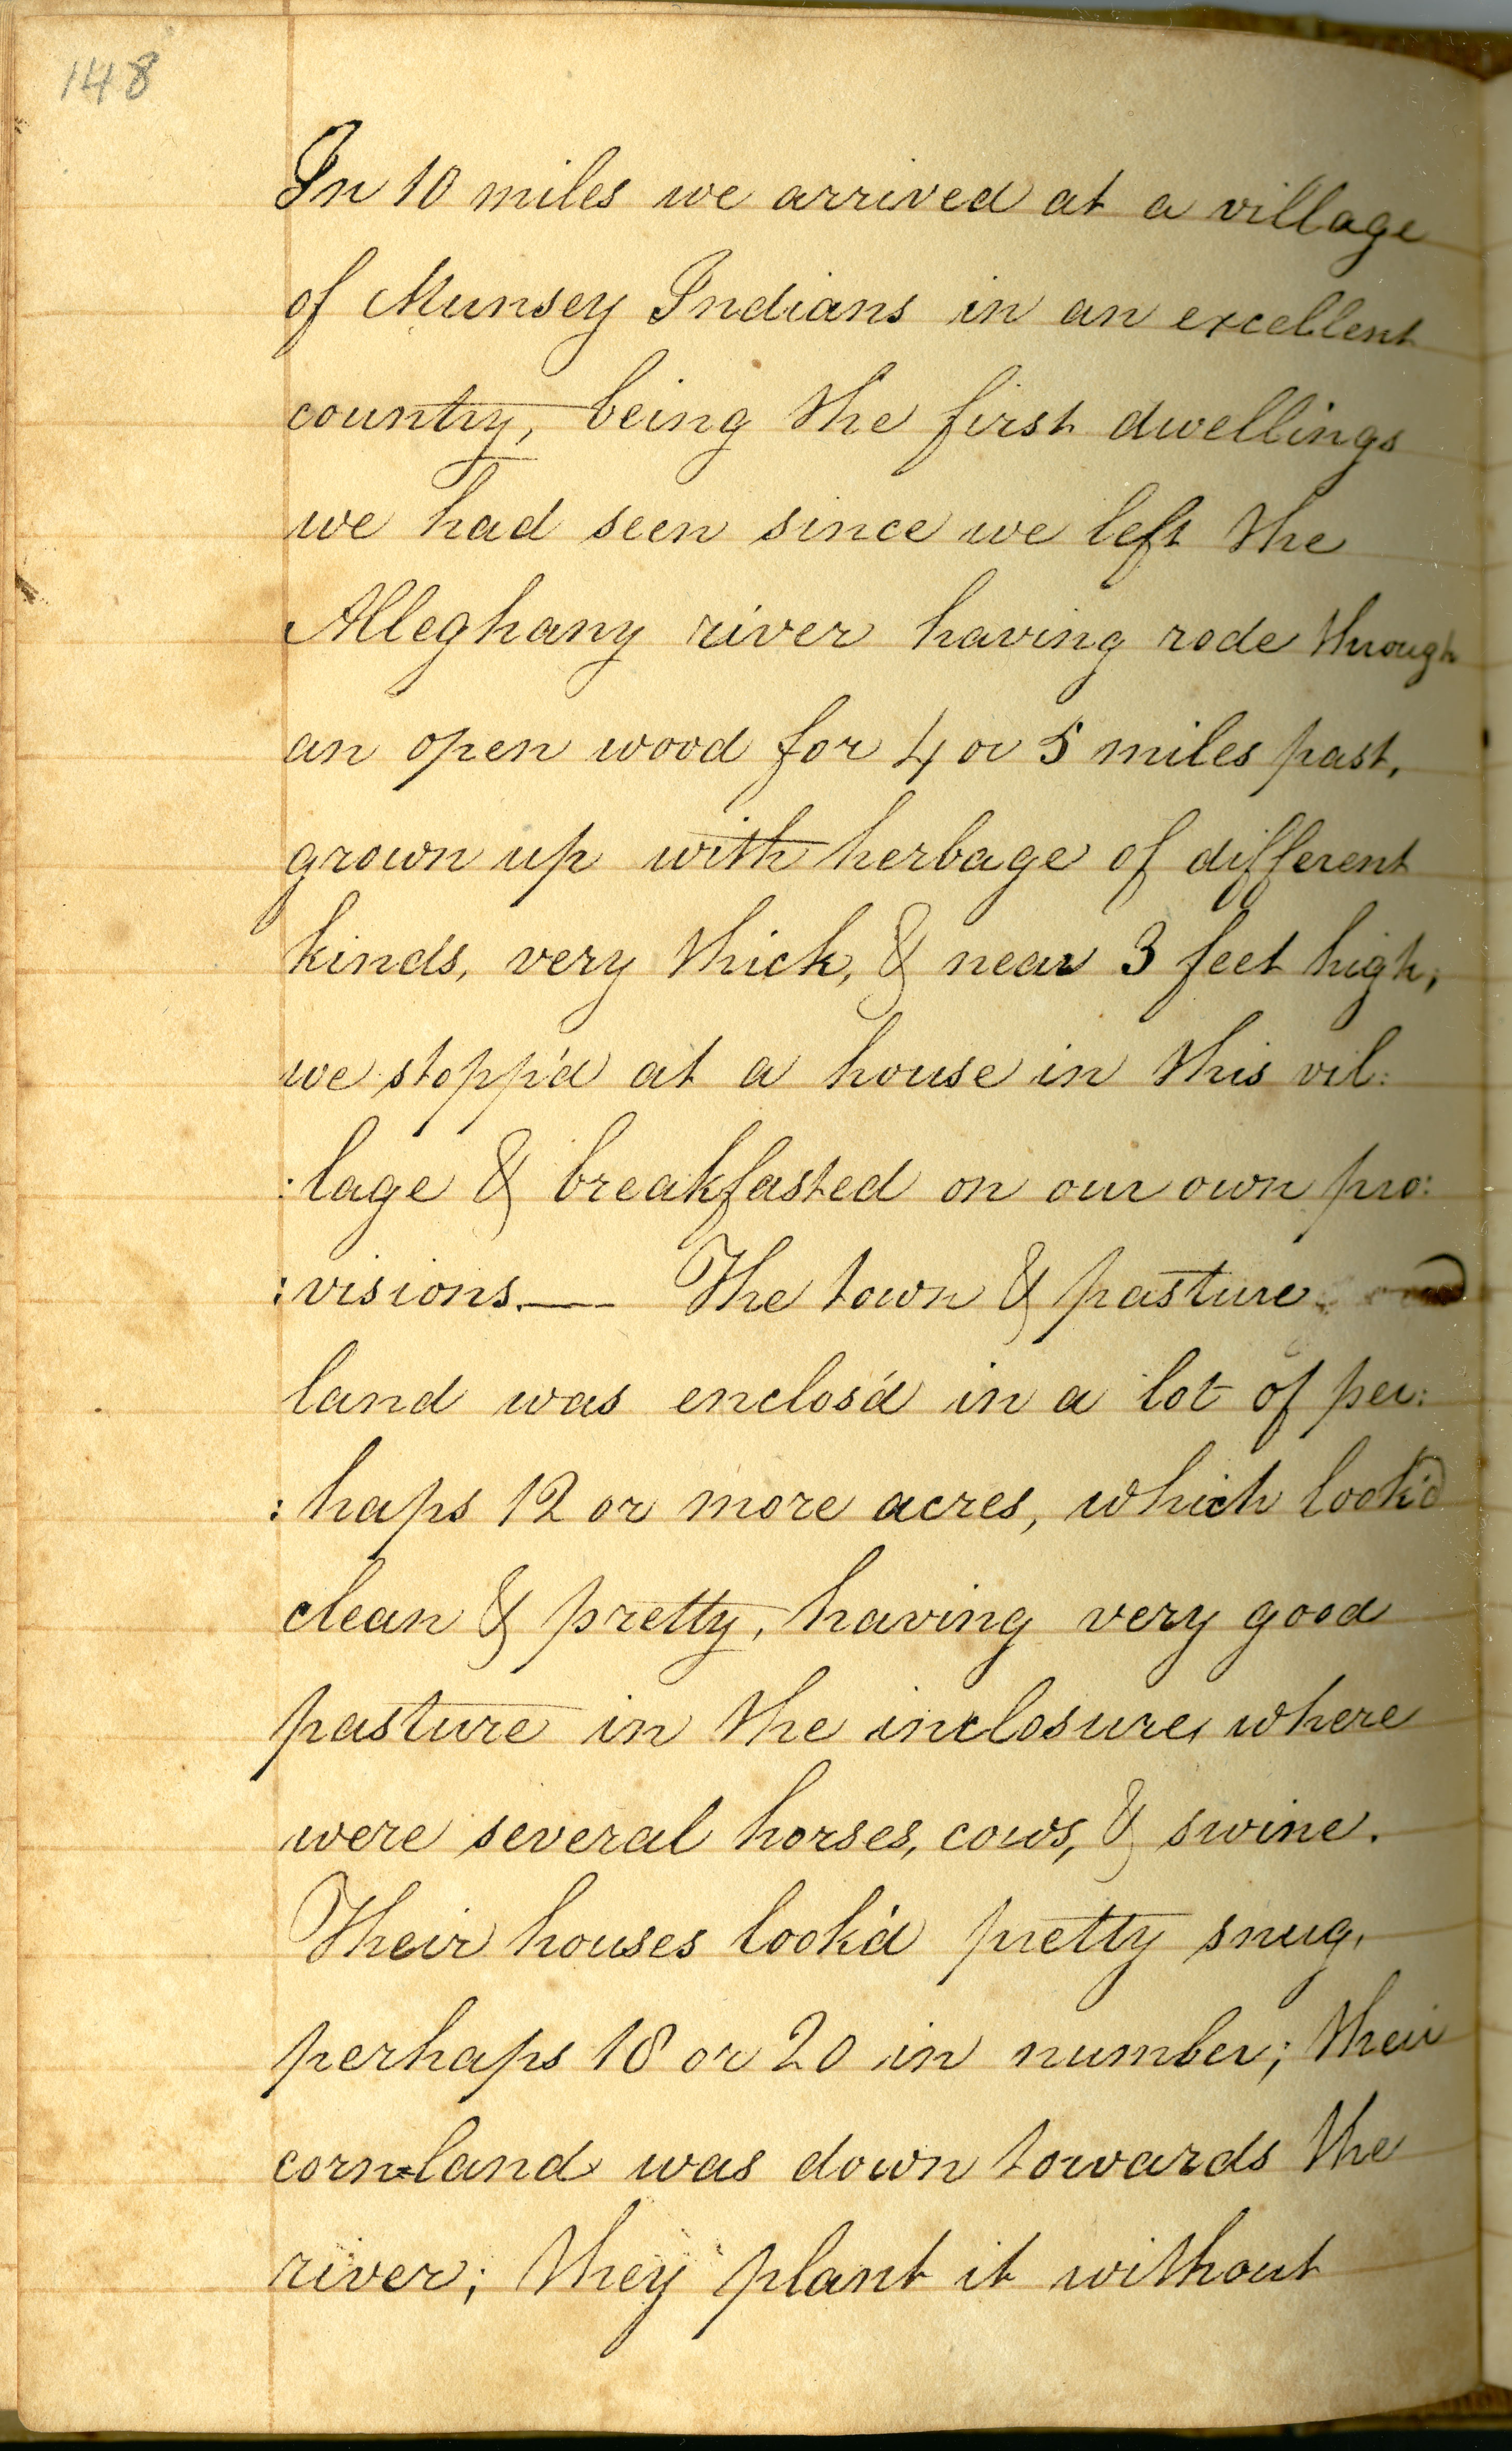 148
In 10 miles we arrived at a village
of Munsey Indians in an excellent
country, being the first dwellings
we had seen since we left the
Alleghany river having rode through
an open wood for 4 or 5 miles past,
grown up with herbage of different
kinds, very thick, & near 3 feet high,
we stopp'd at a house in this vil:
:lage & breakfasted on our own pro:
:visions.— The town & pasture
land was enclos'd in a lot of per:
:haps 12 or more acres, which look'd
clean & pretty, having very good
pasture in the inclosure, where
were several horses, cows, & swine.
Their houses look'd pretty snug,
perhaps 18 or 20 in number; their
corn-land was down towards the
river; they plant it without